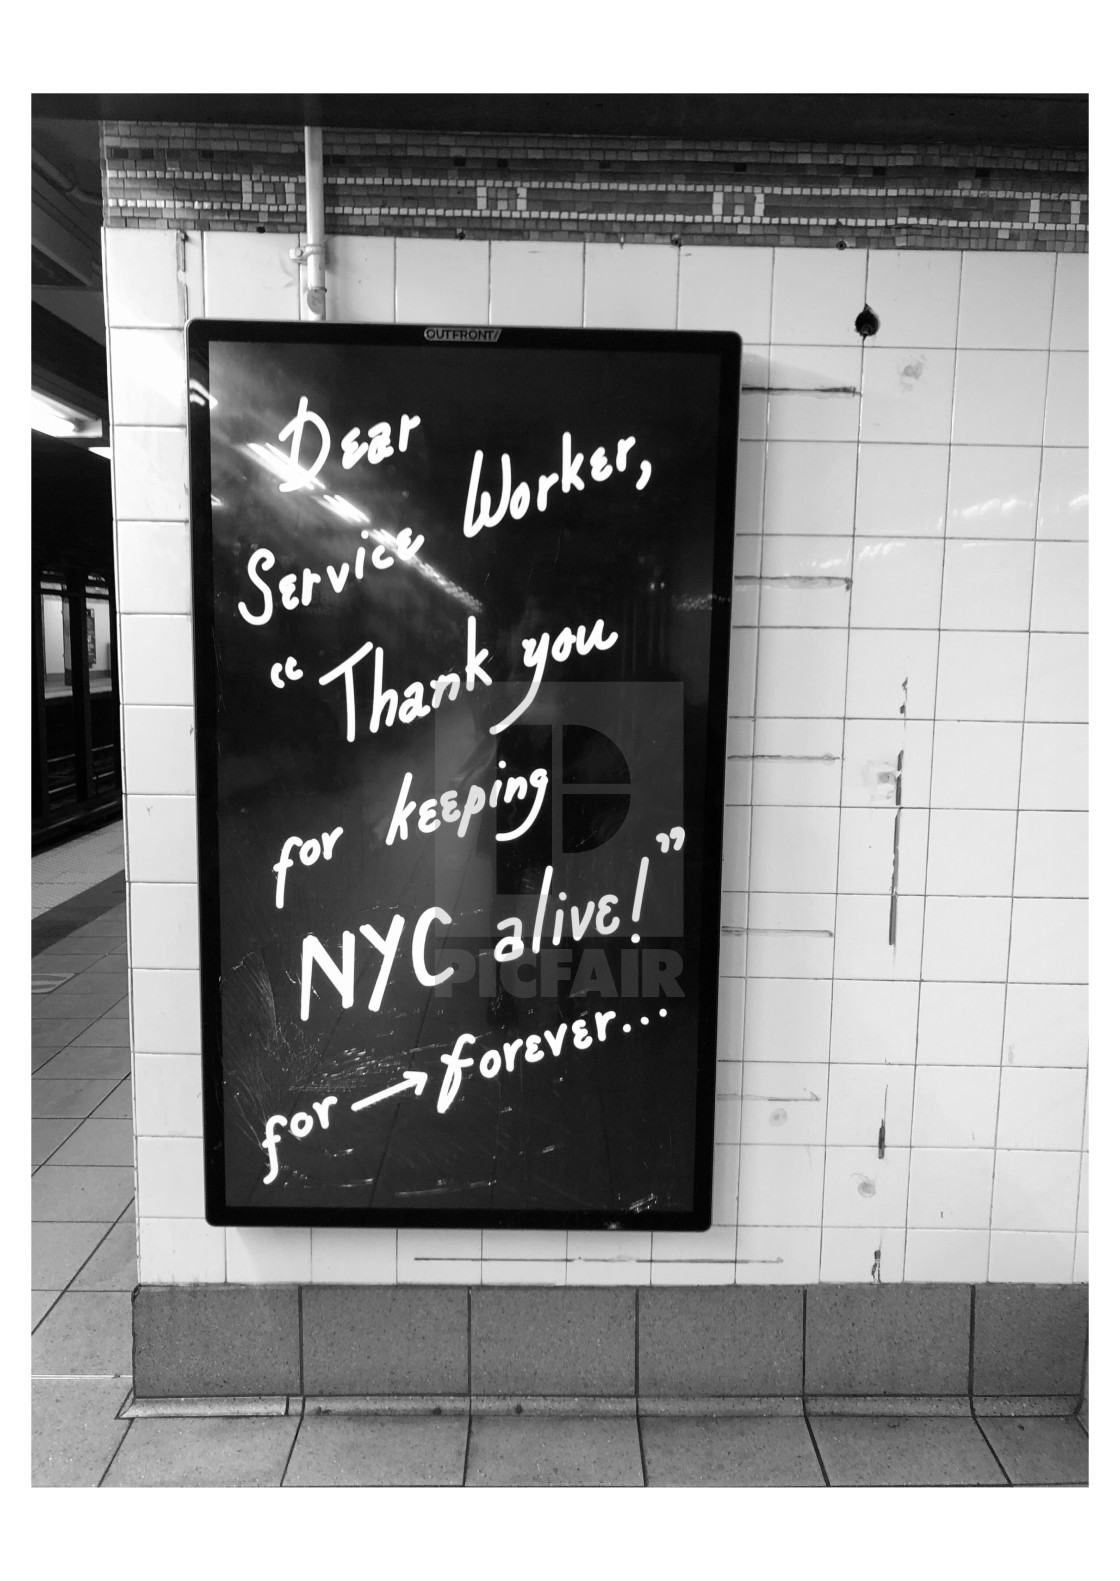 OUTFRONT/
Dear
Service Worker,
“Thank you
for keeping
NYC alive!”
for → forever...
PICFAIR